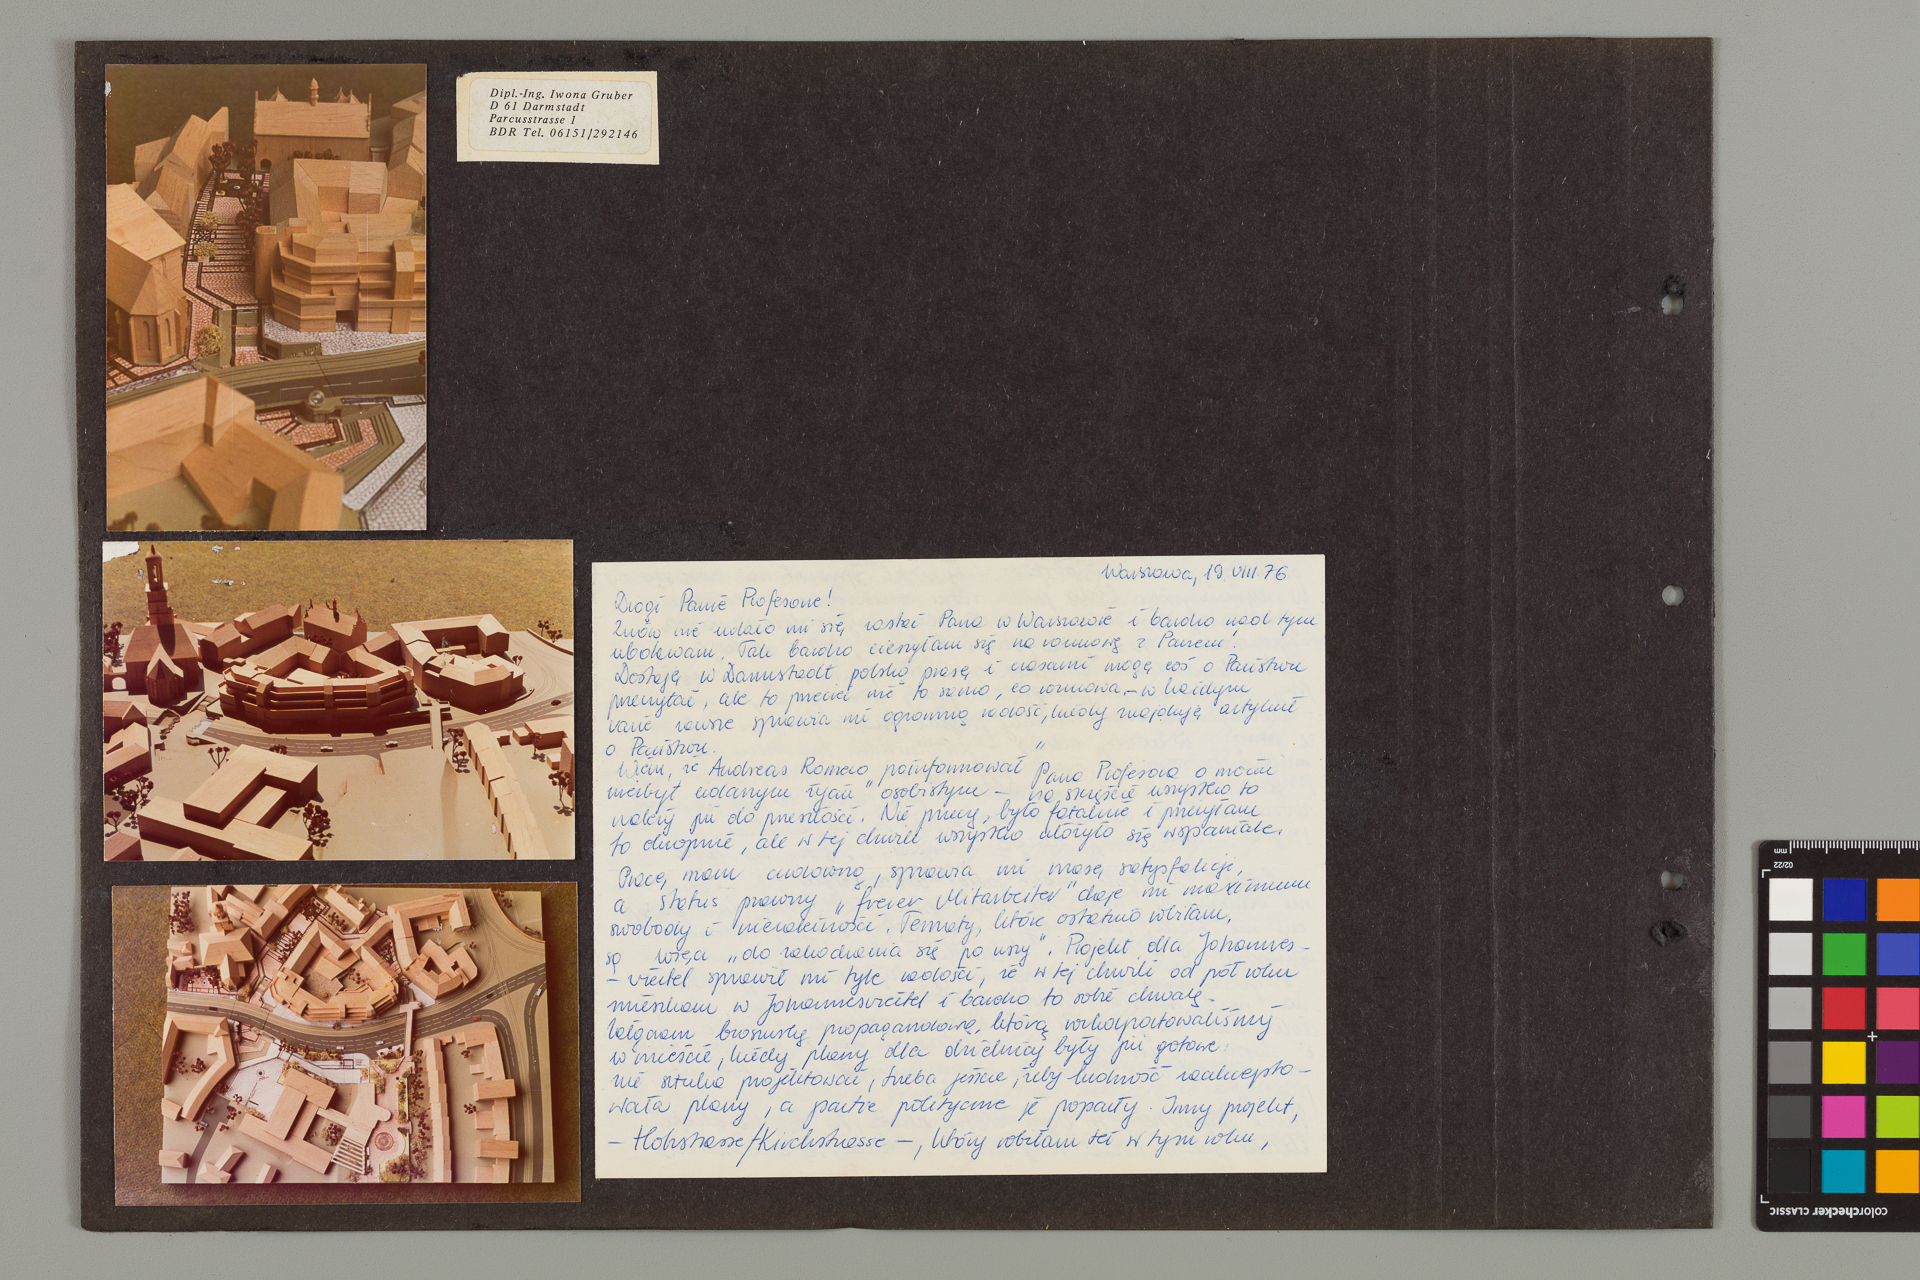 Dipl.-Ing. Iwona Gruber
D 61 Darmstadt
Parcusstrasse 1
BDR Tel. 06151/292146
Warszawa, 19.VIII.76
Drogi Panie Profesorze!
Znów nie udało mi się zastać Pana w Warszawie i bardzo nad tym
ubolewam. Tak bardzo cieszyłam się na rozmowę z Panem!
Dostaję w Darmstadt polską prasę i czasami mogę coś o Państwu
przeczytać, ale to przecież nie to samo, co rozmowa, – w każdym
razie zawsze sprawia mi ogromną radość, kiedy znajduję artykuł
o Państwu.
Wiem, że Andreas Romero „poinformował" Pana Profesora o moim
niezbyt udanym życiu "osobistym – na szczęście wszystko to
należy już do przeszłości. Nie przeczę, było fatalnie i przeżyłam
to okropnie, ale w tej chwili wszystko ułożyło się wspaniale.
Pracę mam cudowną, sprawia mi masę satysfakcji,
a status prawny „freier Mitarbeiter" daje mi maximum
swobody i niezależności. Tematy, które ostatnio robiłam,
są wręcz „do zakochania się po uszy". Projekt dla Johannes-
-viertel sprawił mi tyle radości, że w tej chwili od pół roku
mieszkam w Johannesviertel i bardzo to sobie chwalę.
Załączam broszurkę propagandową, którą rozkolportowaliśmy
w mieście, kiedy plany dla dzielnicy były już gotowe.
Nie sztuka projektować, trzeba jeszcze, żeby ludność zaakcepto-
wała plany, a partie polityczne je poparły. Inny projekt,
– Holzstrasse/Kirchstrasse –, który robiłam też w tym roku,
02/22
mm
colorchecker CLASSIC